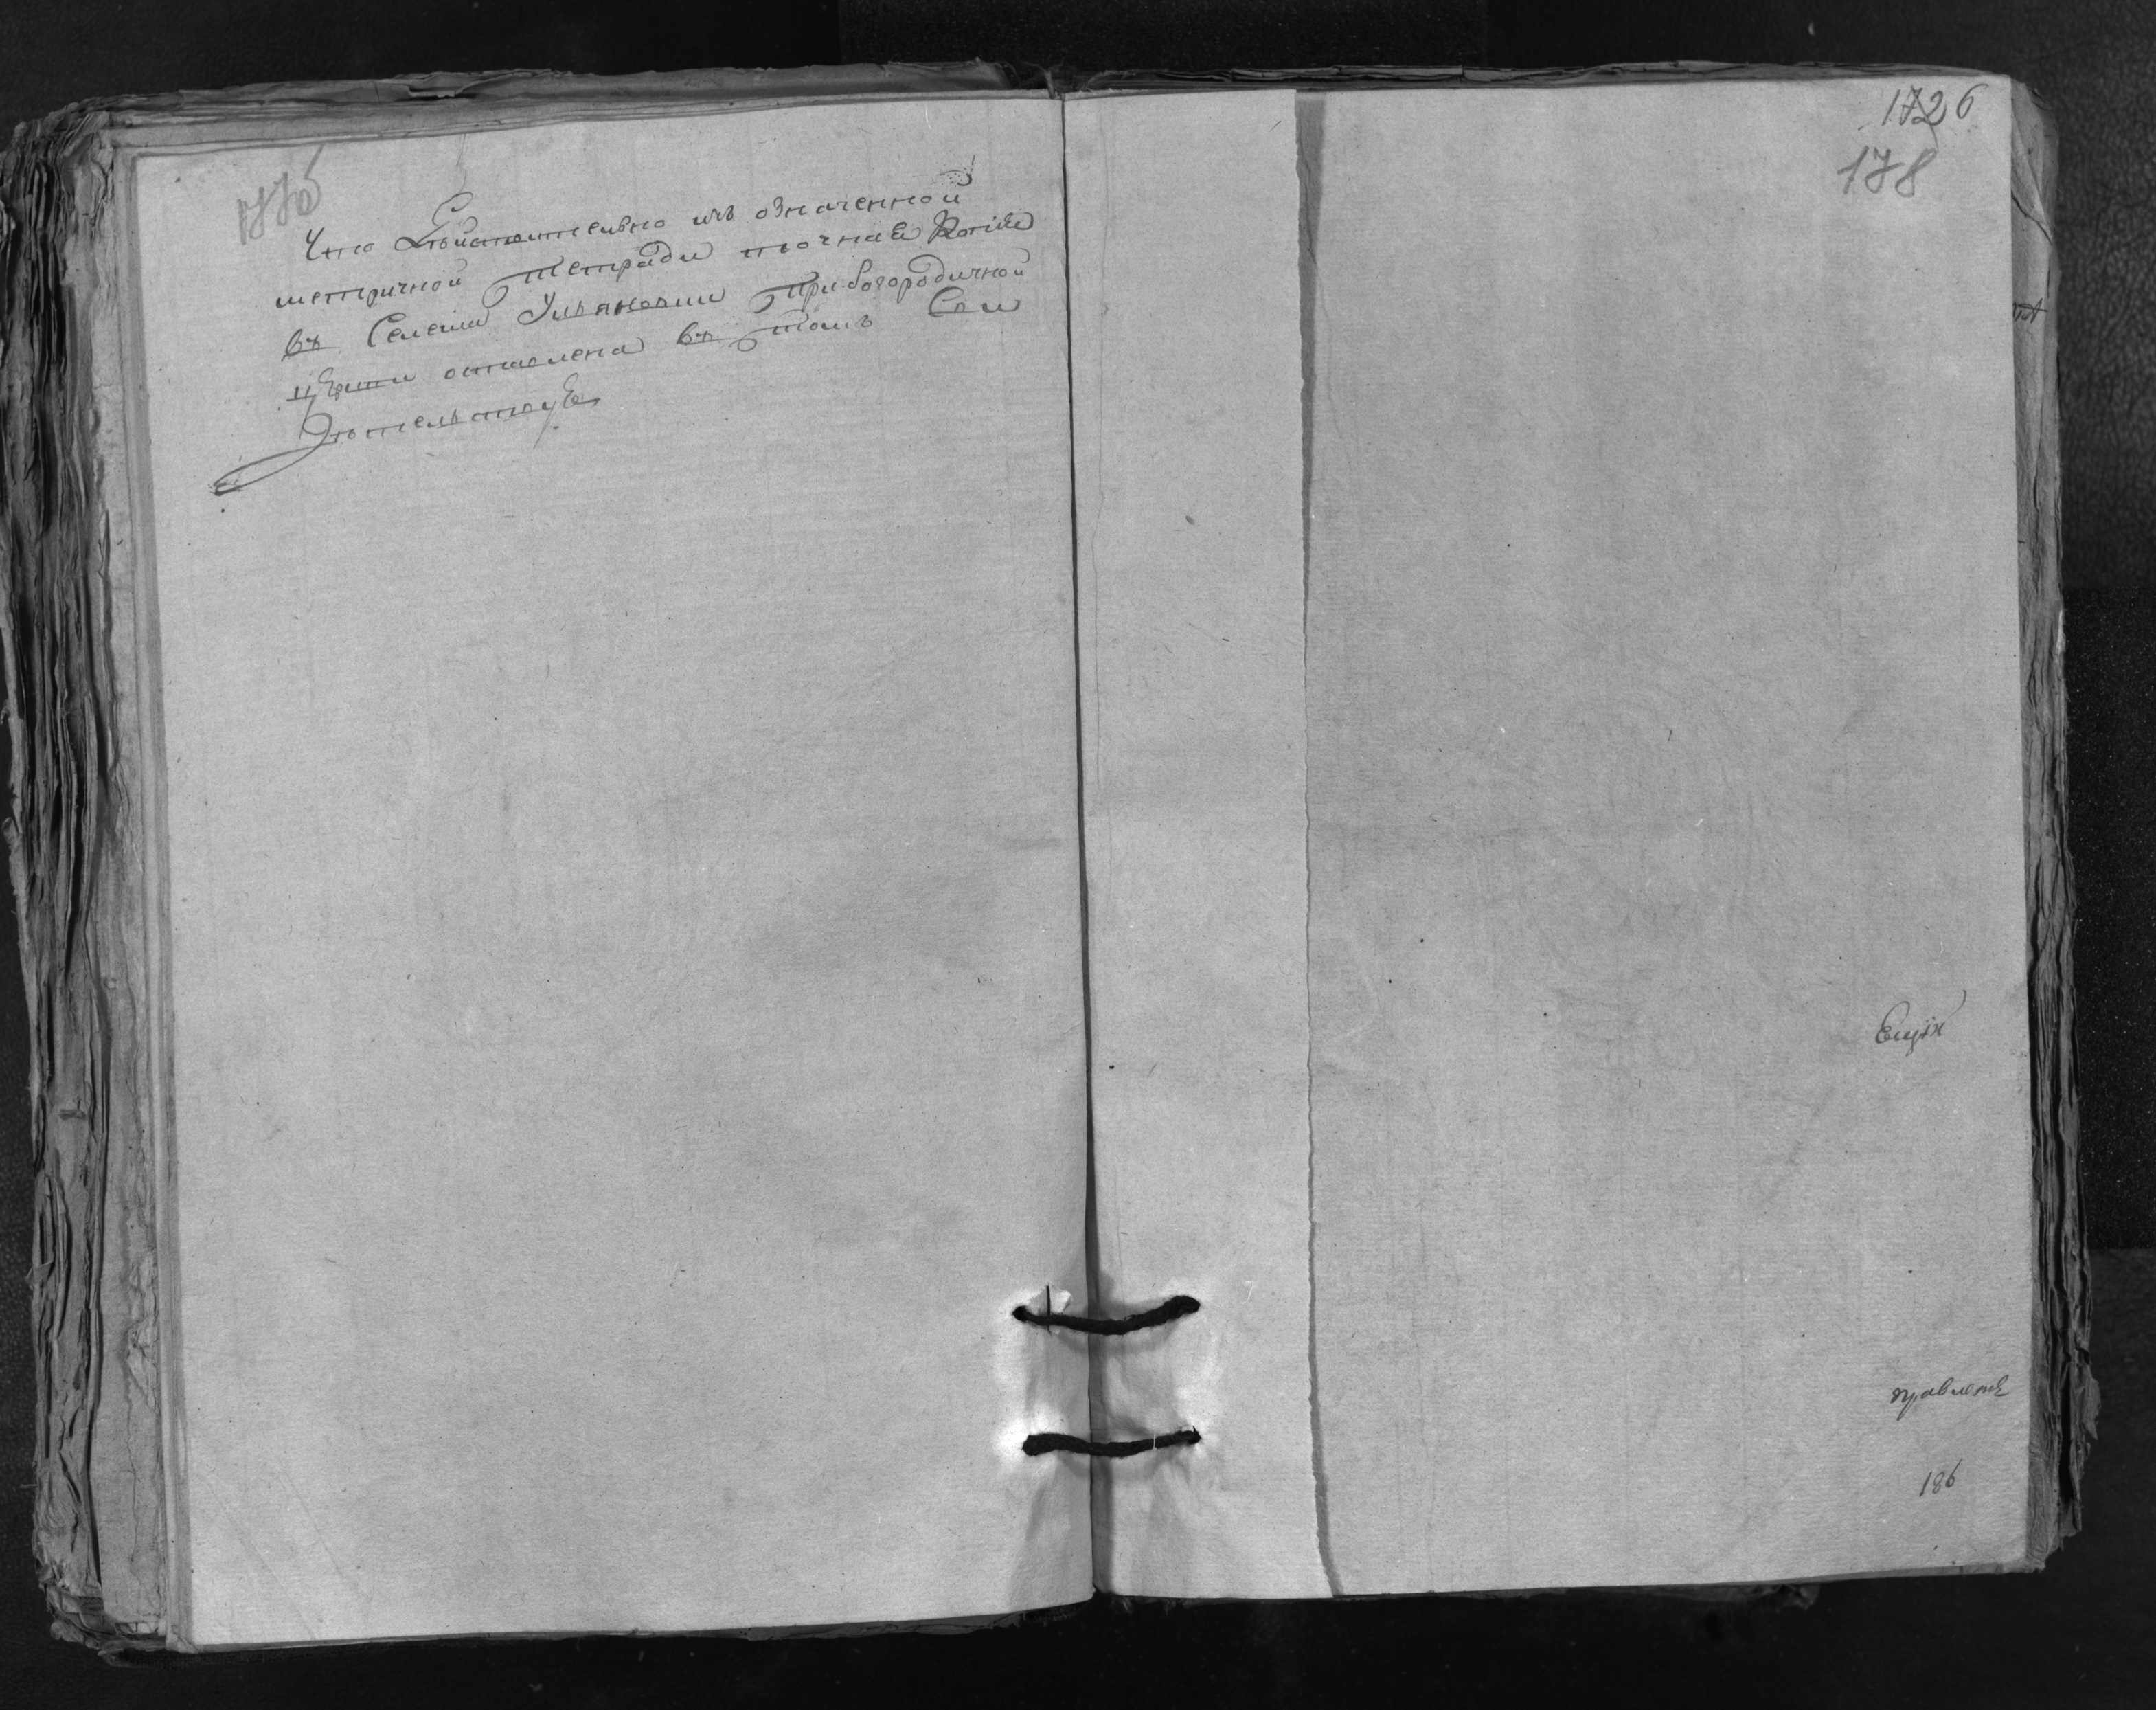 177об
Что Действительно изъ означенной
метричной тетради точная Копия
въ Селении Ульяновки при богородичной
церкви оставлена въ томъ Сви
Дѣтельствуе
1726
178
правлене
186